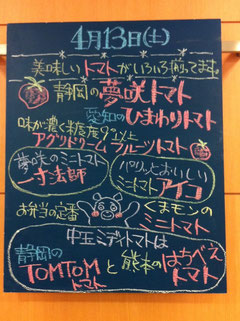 4月13日(土)
美味しいトマトがいろいろ揃ってます。
静岡の夢咲トマト
愛知のひまわりトマト
味が濃く糖度9度以上
アグリドリームフルーツトマト
夢咲のミニトマト
一寸法師
パリッとおいしい
ミニトマトアイコ
お弁当の定番
くまモンの
ミニトマト
中玉ミディトマトは
静岡の
TOMTOM
トマト
と
熊本の
はちべえ
トマト